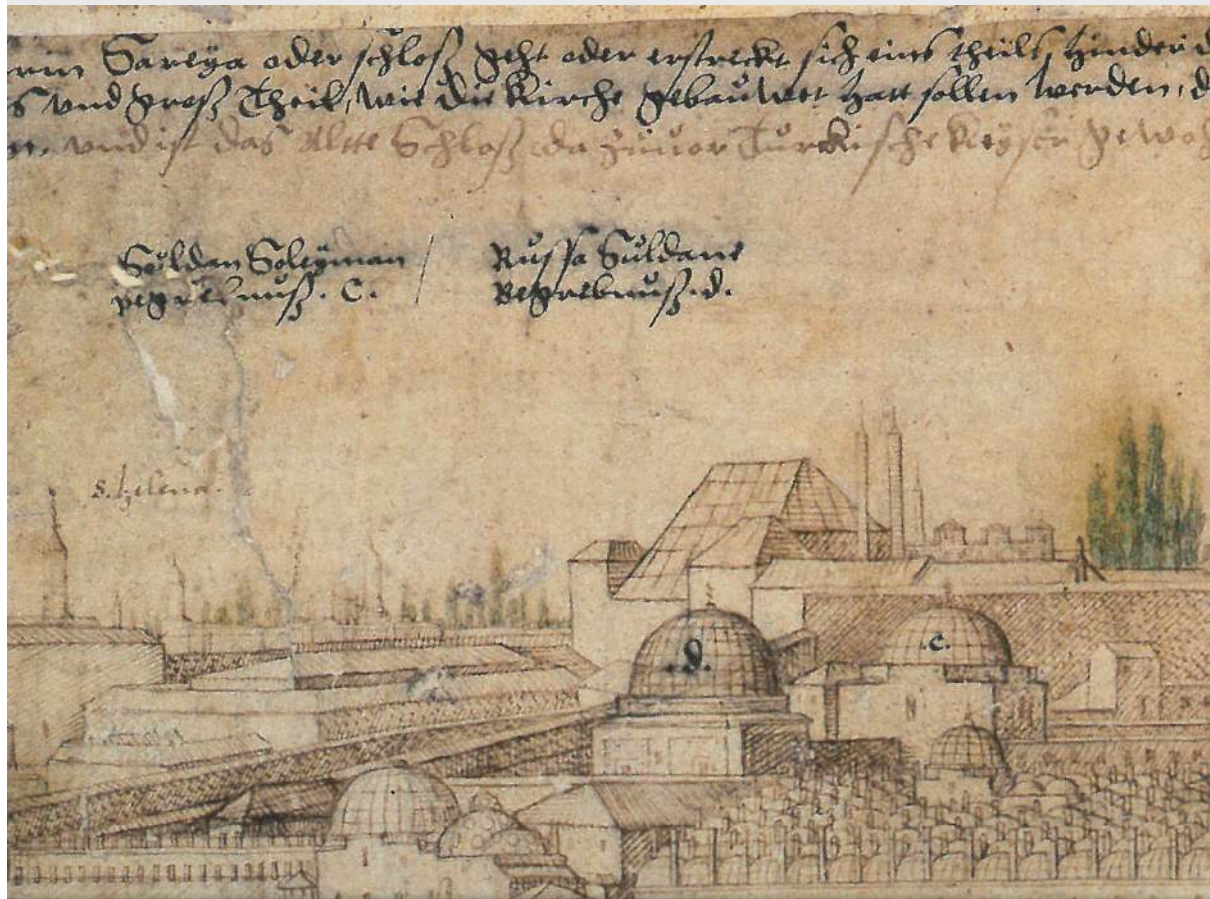 Sareÿa oder schloß geht oder erstreckt sich eins theils, hinder d
s vnd groß Theil, wie die Kirche gebaüwet hatt sollen werden, d
n. vnd ist das Altte Schloß da züuor Türckische Keyser gewoh
Süldan Soleÿman / Rüssa Süldane
begrebnüß . C. Begrebnüß . d.
S. Helena.
.d.
.C.